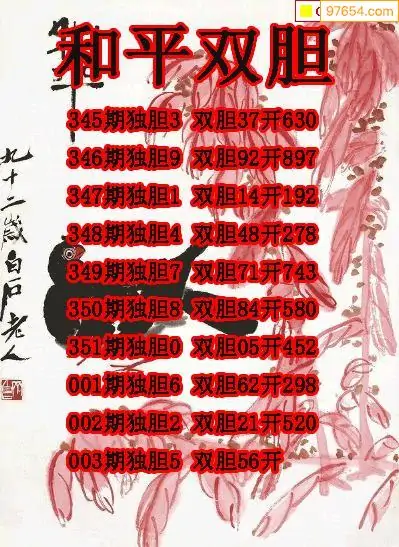 97654.com
和平双胆
345期独胆3 双胆37开630
346期独胆9 双胆92开897
347期独胆1 双胆14开192
348期独胆4 双胆48开278
349期独胆7 双胆71开743
350期独胆8 双胆84开580
351期独胆0 双胆05开452
001期独胆6 双胆62开298
002期独胆2 双胆21开520
003期独胆5 双胆56开
九十二岁白石老人